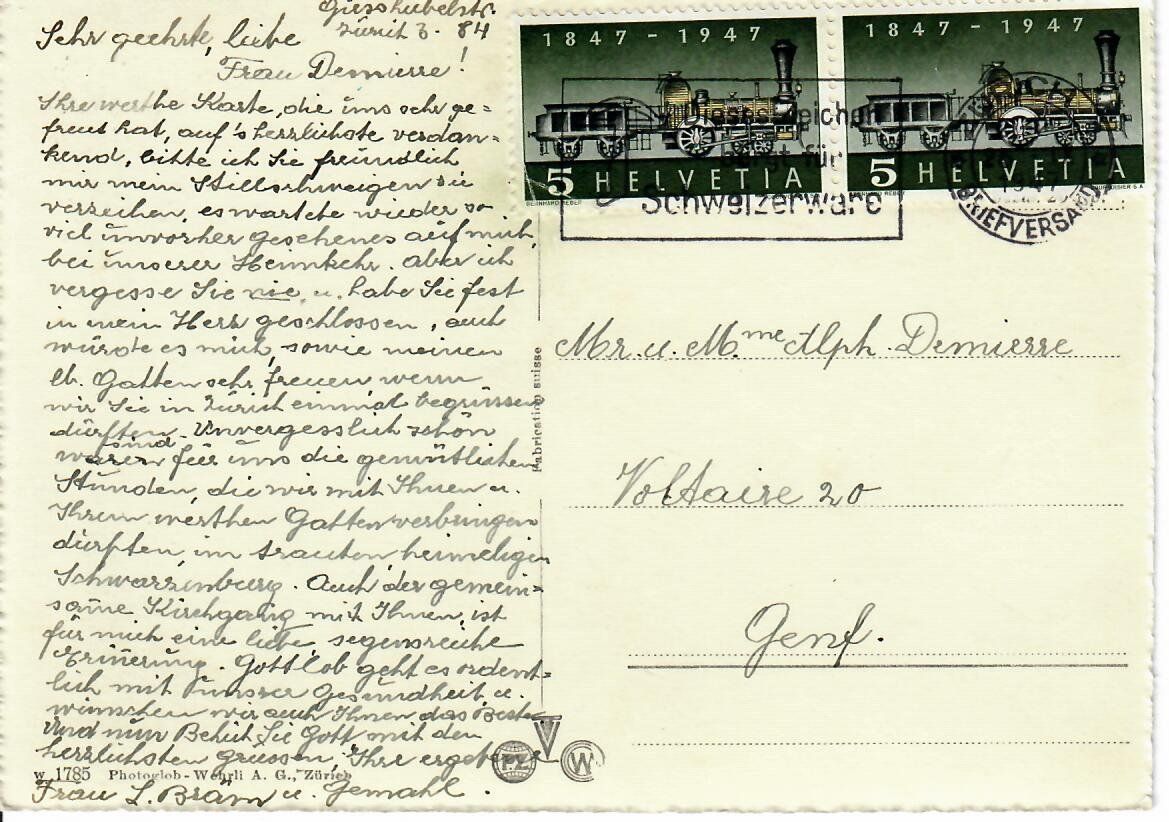 Giesshübelstr.
Zürich 3. 84
Sehr geehrte, liebe
Frau Demierre!
Ihre werthe Karte, die uns sehr ge=
freut hat, auf's herzlichste verdan-
kend, bitte ich Sie freundlich
mir mein Stillschweigen zu
verzeihen, es wartete wieder so
viel unvorher gesehenes auf mich,
bei unserer Heimkehr. Aber ich
vergesse Sie nie u. habe Sie fest
in mein Herz geschlossen, auch
würde es mich, sowie meinen
lb. Gatten sehr freuen wenn
wir Sie in Zürich einmal begrüssen
dürften. Unvergesslich schön
sind
waren für uns die gemütlichen
Stunden, die wir mit Ihnen u.
Ihrem werthen Gatten verbringen
dürften, im trauten, heimeligen
Schwarzenburg. Auch der gemein=
same Kirchgang mit Ihnen, ist
für mich eine liebe, segensreiche
Erinerung. Gottlob geht es ordent=
lich mit unsrer Gesundheit u.
wünschen wir auch Ihnen das Beste
Und nun Behüt Sie Gott mit den
herzlichsten Grüssen, Ihre ergebene
Frau L. Bräm u. Gemahl.
w 1785 Photoglob-Wehrli A. G., Zürich
Fabrication suisse
P.Z.
W
1847 - 1947
5 HELVETIA
BERNHARD REBER
1847 - 1947
5 HELVETIA
BERNHARD REBER
COURVOISIER S A
bürgt für
Schweizerware
1947
BRIEFVERSAND
Mr. u. Mme Alph. Demierre
Voltaire 20
Genf.